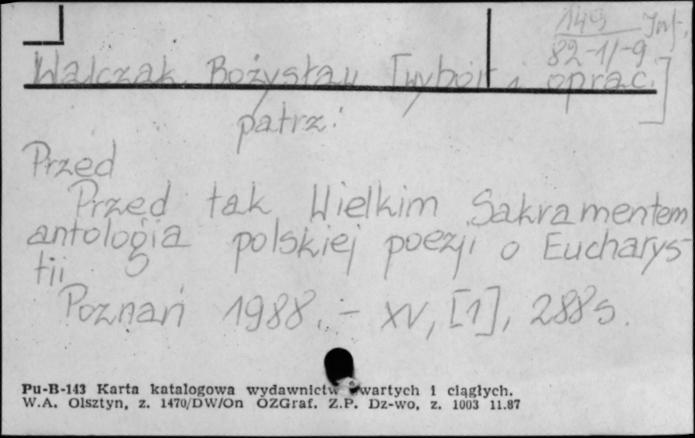 149 Inf.
82-1/-9
Walczak, Bożysław [wybór i oprac.]
patrz:
Przed
Przed tak Wielkim Sakramentem
antologia polskiej poezji o Eucharys-
tii
Poznań 1988. - XV, [1], 288 s.
Pu-B-143 Karta katalogowa wydawnictw zwartych i ciągłych.
W.A. Olsztyn, z. 1470/DW/On OZGraf. Z.P. Dz-wo, z. 1003 11.87